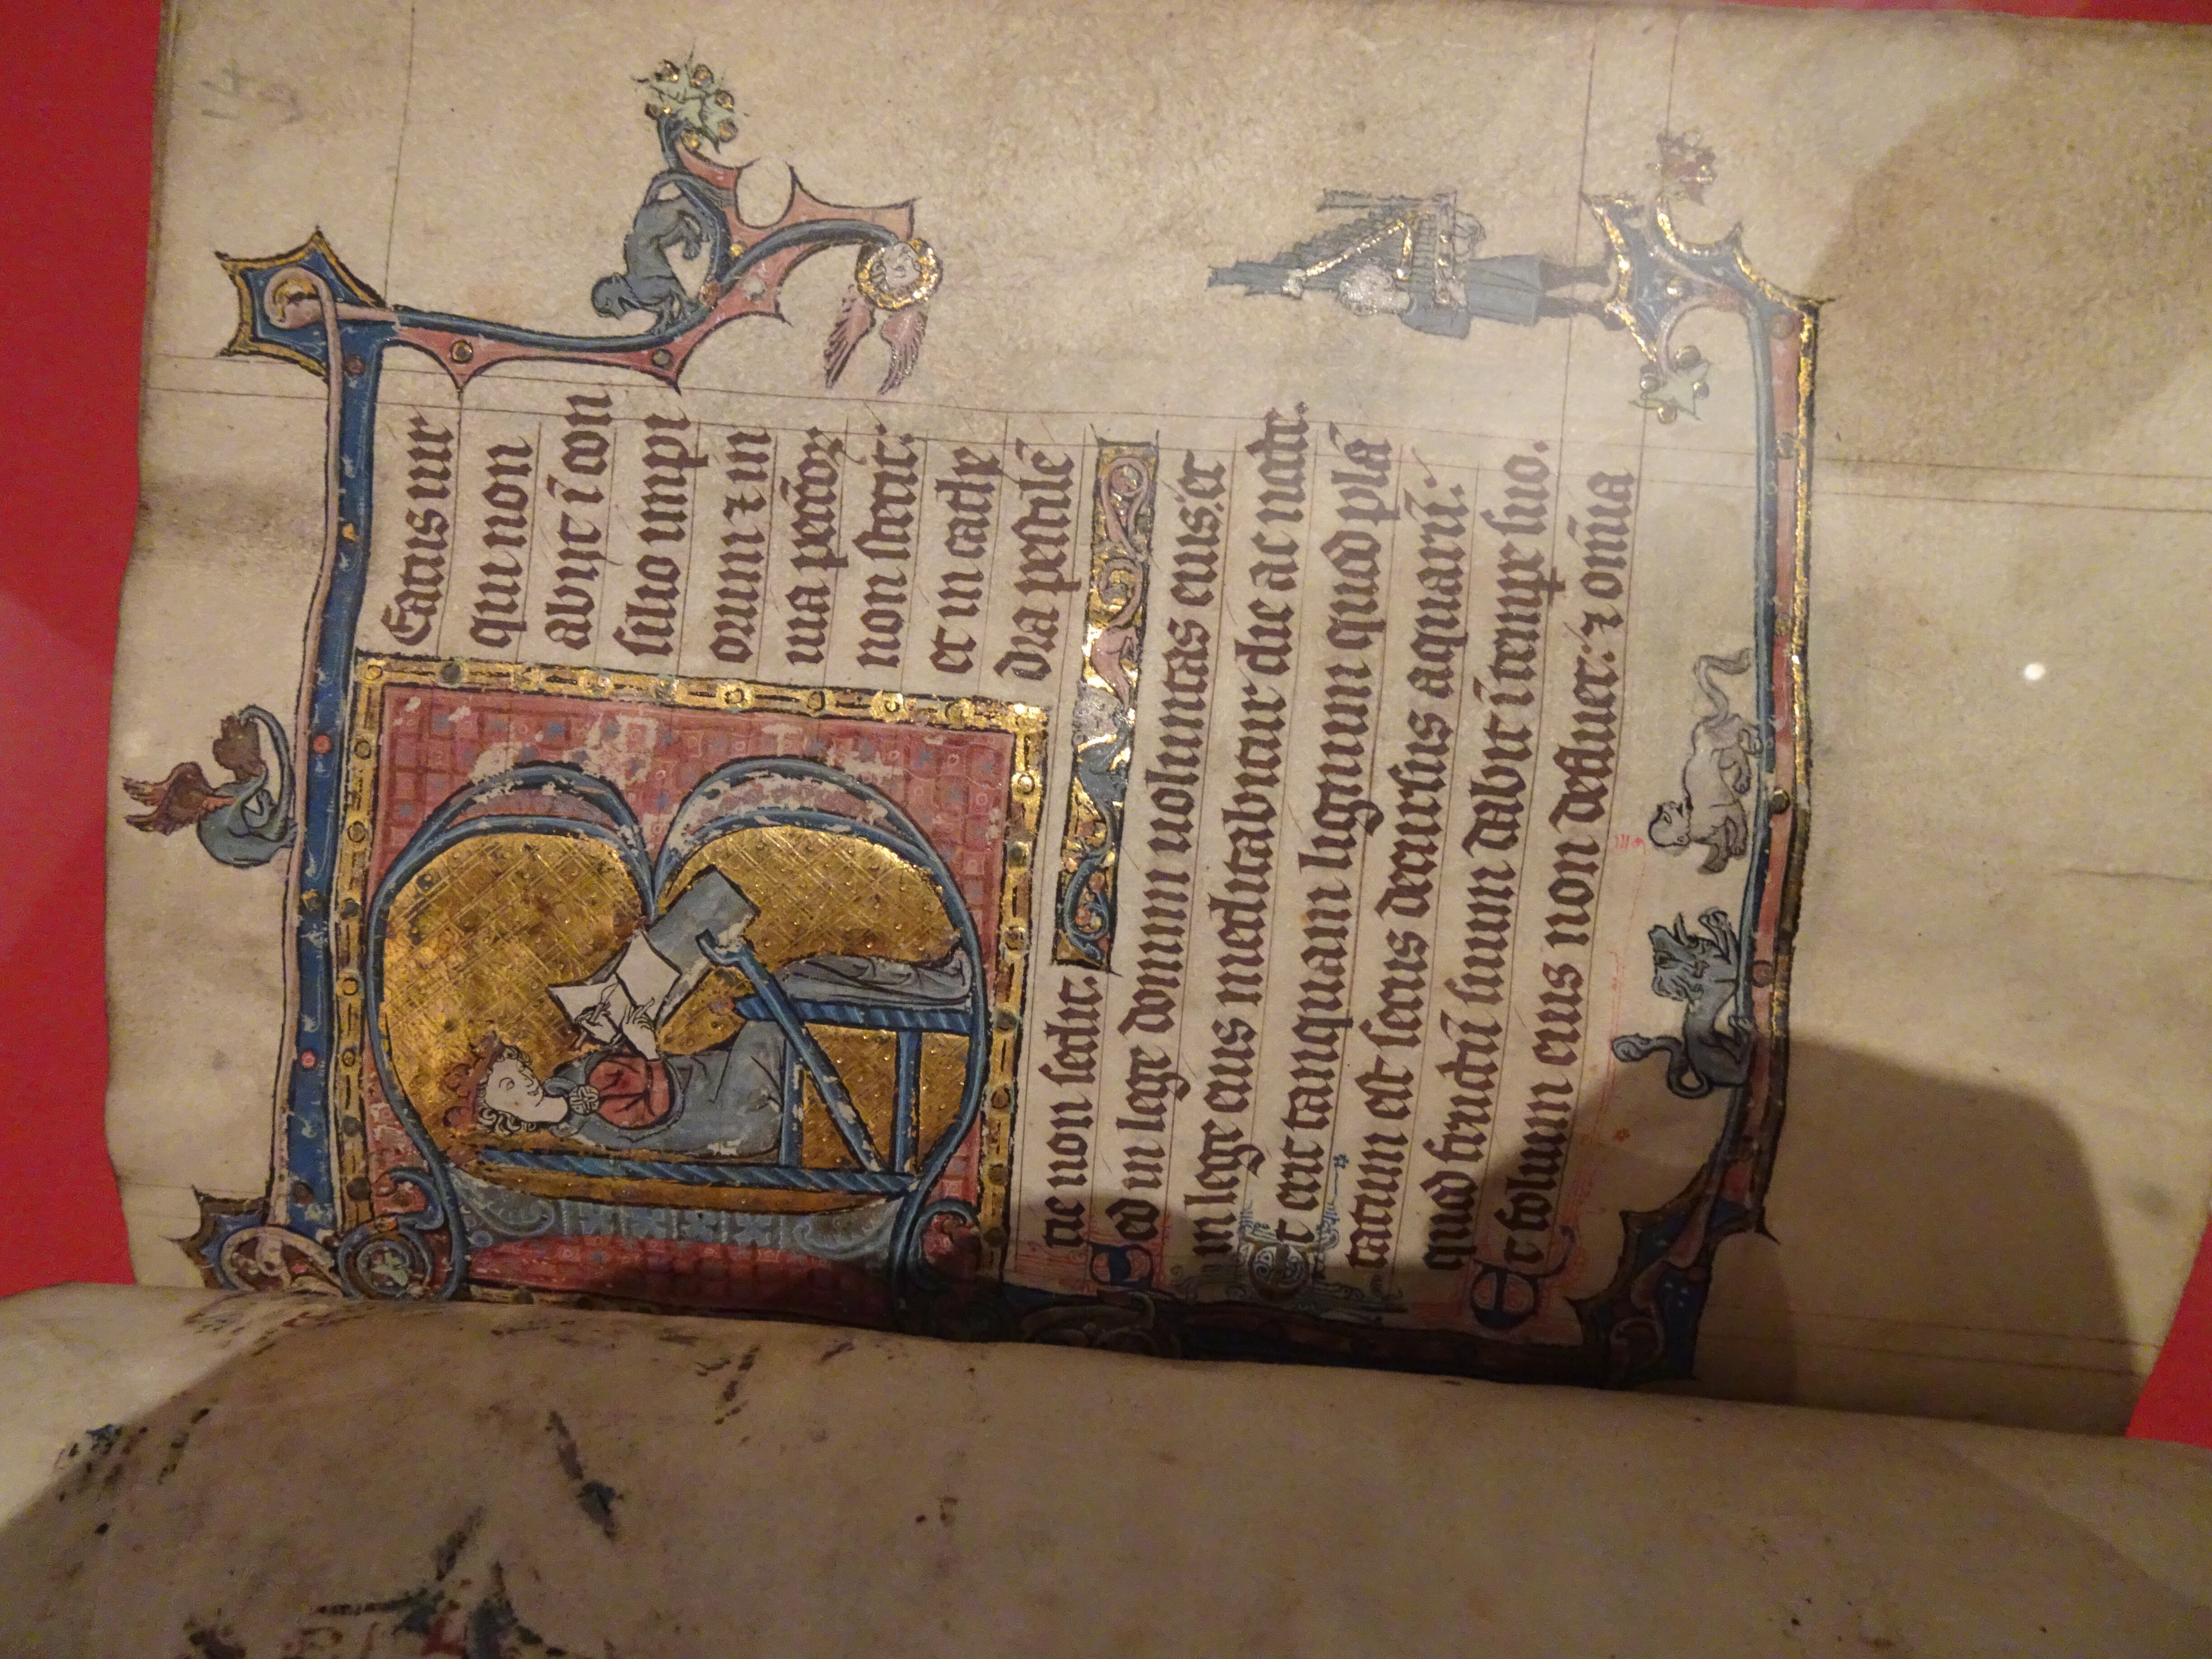 Beatus uir
qui non
abijt ī con
silio impi
orum ⁊ in
uia pecc̄oꝝ
non stetit:
et in cathe
dra pestilē
tie non sedit.
Sed in lege domini uoluntas eius: et
in lege eius meditabitur die ac nocte.
Et erit tanquam lignum quod plā
tatum est secus decursus aquarū:
quod fructū suum dabit ī tempe suo.
Et folium eius non defluet: ⁊ om̄ia